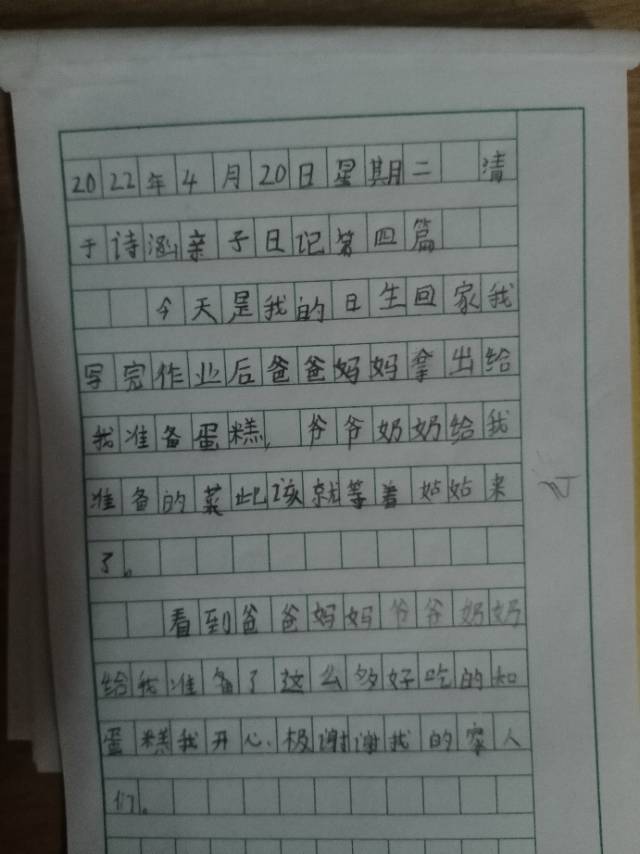 2022年4月20日星期二 清
于诗涵亲子日记第四篇
今天是我的日生回家我
写完作业后爸爸妈妈拿出给
我准备蛋糕，爷爷奶奶给我
准备的菜此该就等着姑姑来
了。
看到爸爸妈妈爷爷奶奶
给我准备了这么多好吃的和
蛋糕我开心、极谢谢我的家人
们。